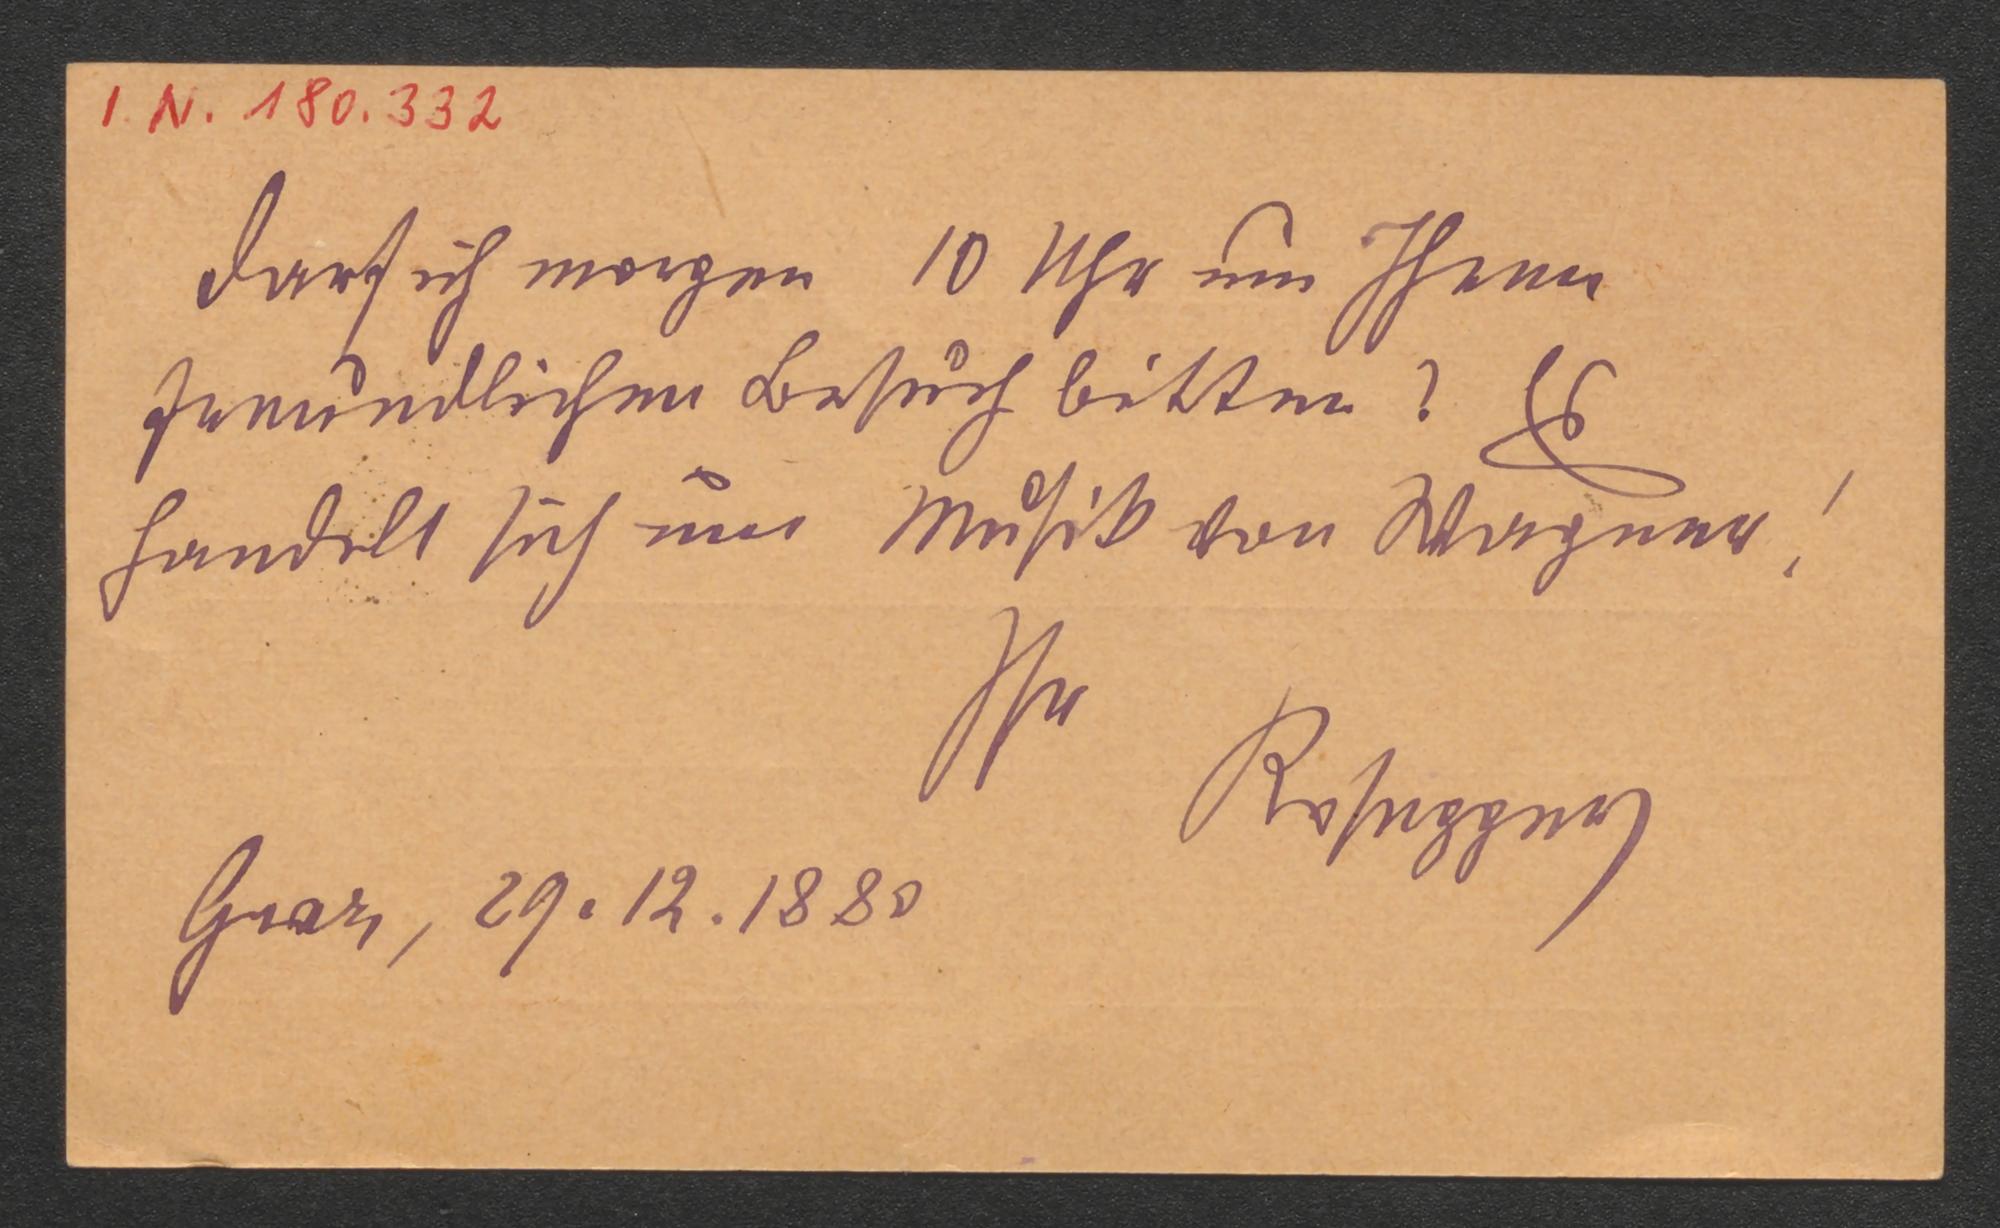 I. N. 180.332
Darf ich morgen 10 Uhr um Ihren
freundlichen Besuch bitten? Es
handelt sich um Musik von Wagner!
Ihr
Rosegger
Graz, 29.12.1880